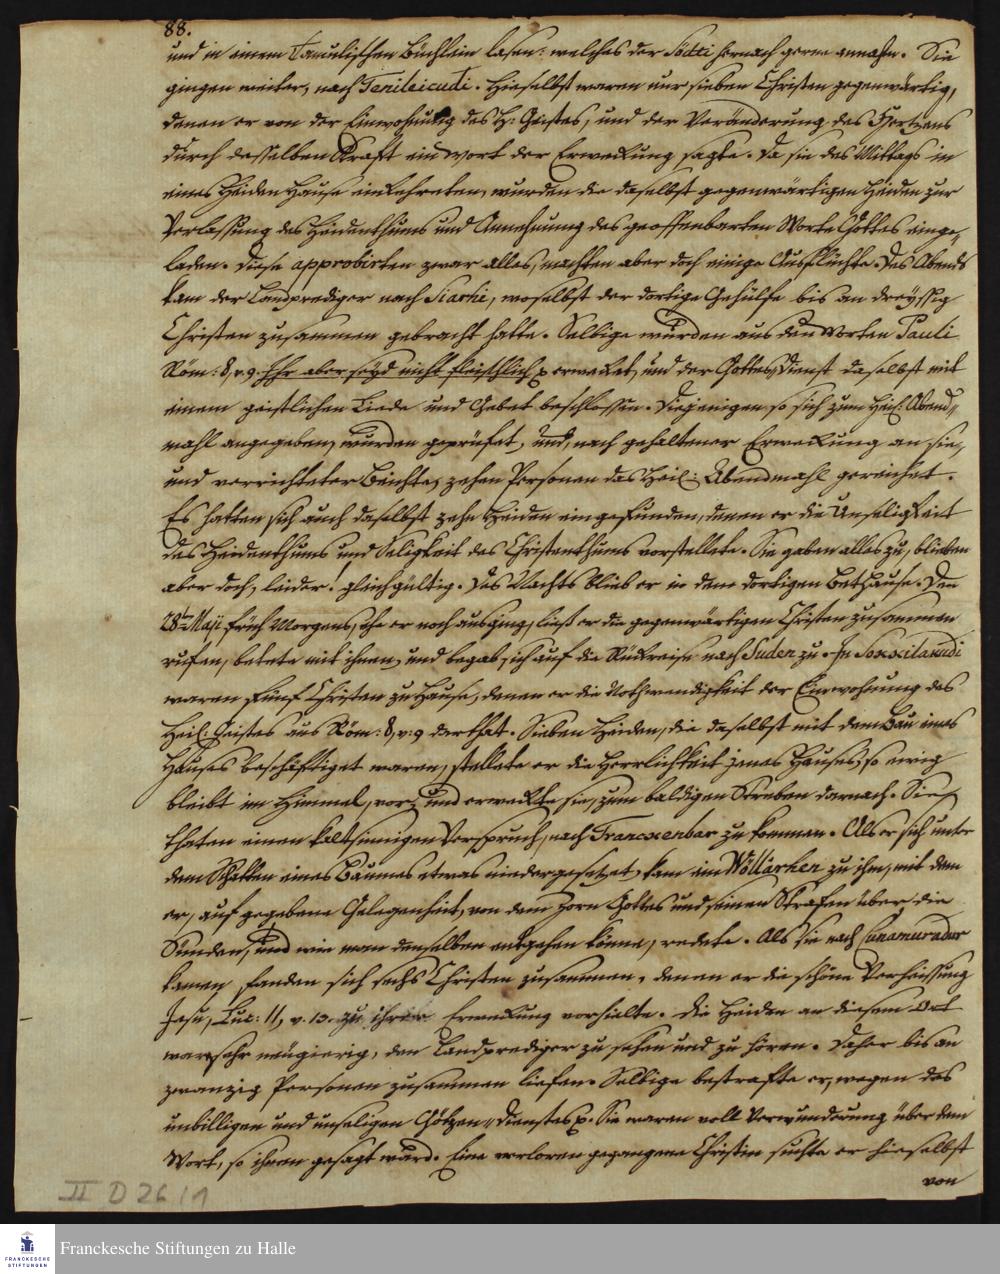 88.
und in einem Tamulischen Büchlein lasen: welches der Sötti hernach gerne annahm. Sie
gingen weiter, nach Tenileicudi. Hieselbst waren nur sieben Christen gegenwärtig,
denen er von der Einwohnung des H: Geistes, und der Veränderung des Hertzens
durch desselben Kraft ein Wort der Erweckung sagte. Da sie des Mittags in
eines Heiden Hause einkehreten, wurden die daselbst gegenwärtigen Heiden zur
Verlassung des Heidenthums und Annehmung des geoffenbarten Worts Gottes einge-
laden. Diese approbirten zwar alles, machten aber doch einige Ausflüchte. Des Abends
kam der Landprediger nach Siarhi, woselbst der dortige Gehülfe bis an dreyssig
Christen zusammen gebracht hatte. Selbige wurden aus den Worten Pauli
Röm: 8, v. 9. Ihr aber seyd nicht fleischlich p erwecket, und der Gottes-Dienst daselbst mit
einem geistlichen Liede und Gebet beschlossen. Diejenigen, so sich zum Heil: Abend-
mahl angegeben, wurden geprüfet, und, nach gehaltener Erweckung an sie,
und verrichteter Beichte, zehen Personen das Heil: Abendmahl gereichet.
Es hatten sich auch daselbst zehn Heiden eingefunden, denen er die Unseligkeit
des Heidenthums und Seligkeit des Christenthums vorstellete. Sie gaben alles zu, blieben
aber doch, leider! gleichgültig. Des Nachts blieb er in dem dortigen Bethause. Den
28ten Maji früh Morgens, ehe er noch ausging, ließ er die gegenwärtigen Christen zusammen
rufen, betete mit ihnen, und begab sich auf die Rückreise nach Suden zu. In
waren fünf Christen zu Hause, denen er die Nothwendigkeit der Einwohnung des
Heil: Geistes aus Röm: 8, v: 9 darthat. Sieben Heiden, die daselbst mit dem Bau eines
Hauses beschäftiget waren, stellete er die Herrlichkeit jenes Hauses, so ewig
bleibt im Himmel, vor, und erweckte sie, zum baldigen Streben darnach. Sie
thaten einen kaltsinnigen Verspruch, nach Trancxenbar zu kommen. Als er sich unter
dem Schatten eines Baumes etwas niedergesetzet, kam ein Wöttiarhen zu ihm, mit dem
er, auf gegebene Gelegenheit, von dem Zorn Gottes und seinen Strafen über die
Sünden, und wie man denselben entgehen könne, redete. Als sie nach Cunamuradur
kamen, fanden sich sechs Christen zusammen, denen er die schöne Verheissung
Jesu, Luc: 11, v. 13. zu ihrer Erweckung vorhielte. Die Heiden an diesem Ort
waren sehr neugierig, den Landprediger zu sehen und zu hören. Daher bis an
zwanzig Personen zusammen liefen. Selbige bestrafte er, wegen des
unbilligen und unseligen Götzen-Dienstes p. Sie waren voll Verwunderung über dem
Wort, so ihnen gesagt ward. Eine verloren gegangene Christin suchte er hieselbst
von
II D 26 11
FRANCKESCHE STIFTUNGEN
Franckesche Stiftungen zu Halle